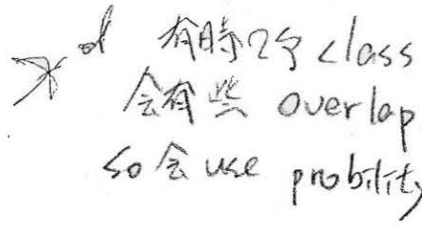 d 有時2个class
会有些 overlap
so 会 use probility